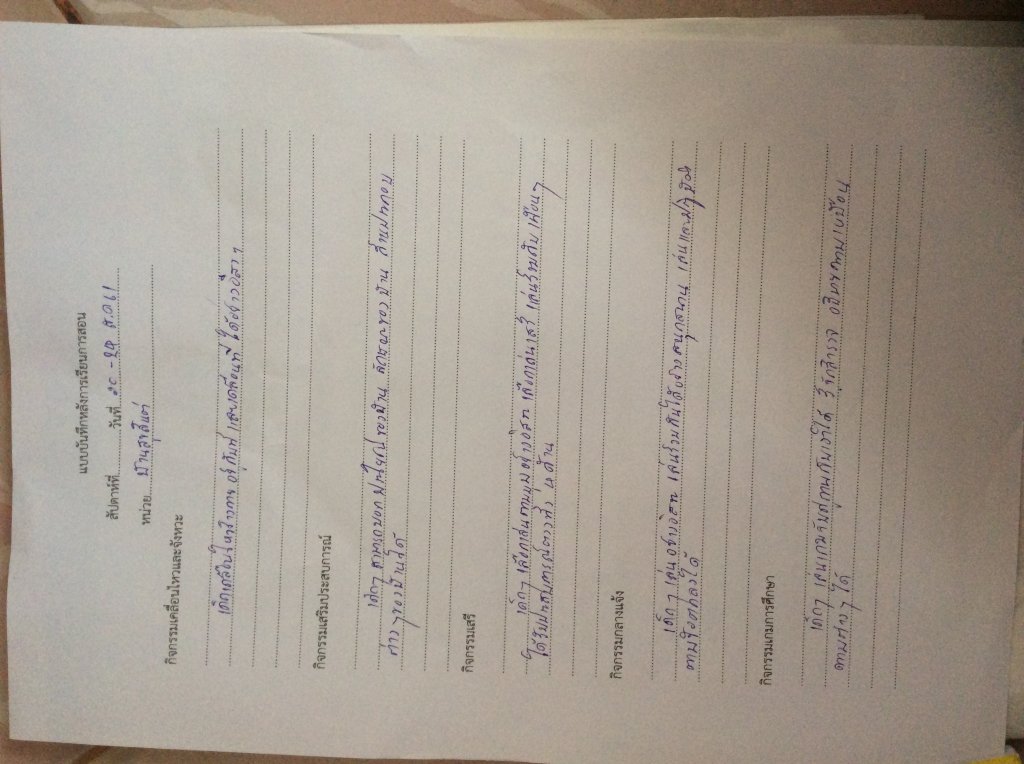 แบบบันทึกหลังการเรียนการสอน
สัปดาห์ที่ วันที่ 20 - 24 ส.ค 61
หน่วย บ้านสุขสันต์
กิจกรรมเคลื่อนไหวและจังหวะ
เด็กเคลื่อนไหวร่างกาย อยู่กับที่ และเคลื่อนที่ ได้อย่างอิสระ
กิจกรรมเสริมประสบการณ์
เด็กๆ สามารถบอกประโยชน์ของบ้าน ลักษณะของบ้าน ส่วนประกอบ
ต่างๆ ของบ้านได้
กิจกรรมเสรี
เด็กๆ เลือกเล่นตามมุมอย่างอิสระ เลือกเล่นเสรี เล่นร่วมกับเพื่อนๆ
ได้รับประสบการณ์ตรงทั้ง 4 ด้าน
กิจกรรมกลางแจ้ง
เด็กๆ เล่นอย่างอิสระ เล่นร่วมกันได้อย่างสนุกสนาน เล่นและปฏิบัติ
ตามข้อตกลงได้
กิจกรรมเกมการศึกษา
เด็กๆ เล่นเกมจับคู่ภาพกับเงาได้ รู้จักสำรวจ อธิบายความเหมือน
ความต่างๆ ได้